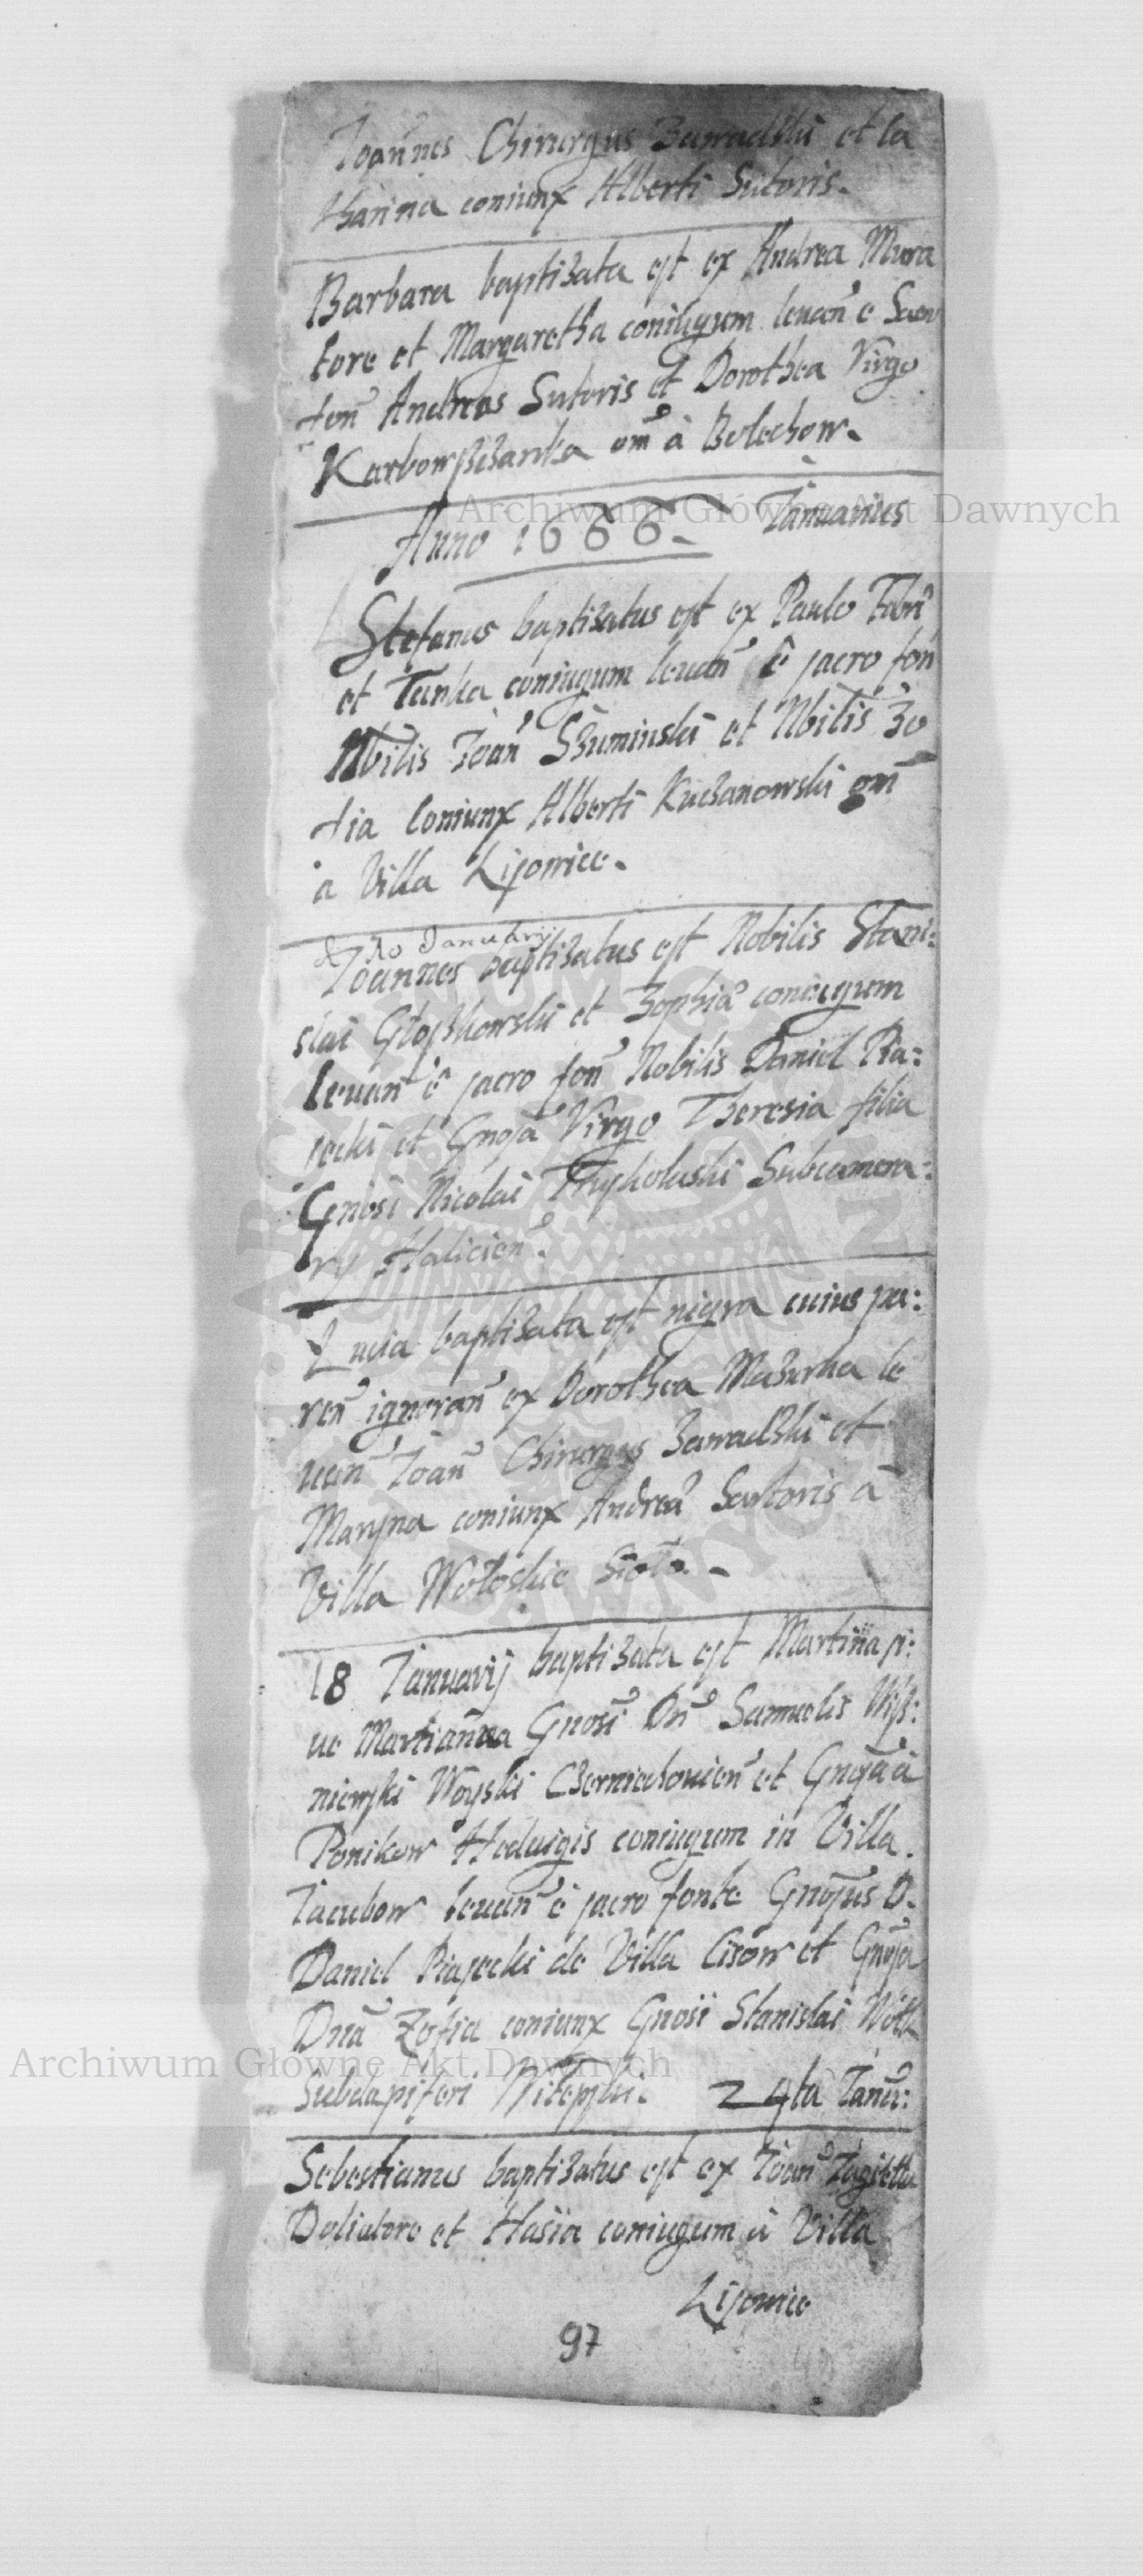 Joannes Chirurgus Zawadzki et Ca
tharina coniunx Alberti Sutoris.
Barbara baptizata est ex Andrea Mura
tore et Margaretha coniugum levan̄ e Sacro
fon̄ Andreas Sutoris et Dorothea Virgo
om̄ à Bolechow.
Anno 1686. Januarius
Stefanus baptizatus est ex Paulo Fabri
et Tanka coniugum levan̄ ê sacro fon
Nbilis Joan̄ Szuminski et Nbilis Zo
fia Coniunx Alberti Kuczanowski om̄
a Villa Lisowice.
d. 10 Januarij
Joannes baptizatus est Nobilis Stani:
slai et Zophia coniugum
levan̄ ê sacro fon̄ Nobilis Daniel Pia:
secki et Gnosa Virgo Theresia filia
Gnosi Nicolai Subcamera:
rij Halicien̄.
Lucia baptizata est nigra cuius pa:
ren̄ ignoran̄ ex Dorothea Mazurka le
uan̄ Joan̄ Chirurgus Zawadzki et
Maryna coniunx Andrea Sartoris à
Villa Wołoskie Sioło.
18 Januarij baptizata est Martina si:
ue Martianna Gnosi Dn̄ Samuelis Wisz:
niewski Woyski Czerniechovien̄ et Gnosa à
Ponikow Hedvigis coniugum in Villa
Jacubow levan̄ ê sacro fonte Gnosus D.
Daniel Piasecki de Villa Cisow et Gnosa
Dna Zofia coniunx Gnosi Stanislai Wolk
Subdapiferi Witepski. 24ta Janu:
Sebestianus baptizatus est ex Joan̄ Jagiełła
Doliatore et Hasia coniugum à Villa
Lisowice
97
Archiwum Główne Akt Dawnych
Archiwum Główne Akt Dawnych